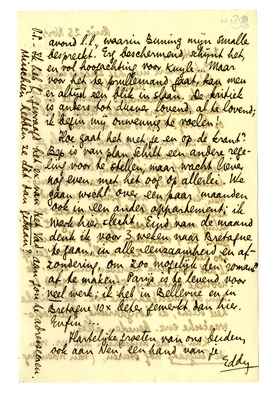 avond l.l., waarin Binning mijn smalle
bespreekt. Erg beschermend, schijnt het,
en vol hoogachting voor Kuyle. Maar
voor het te prullemand gaat kan men
er altijd een blik in slaan. De kritiek
is anders tot dusver lovend, al te lovend;
ik begin mij onwennig te voelen!
Hoe gaat het met je en op de krant?
Bep is van plan schilt een andere refe-
lui voor te stellen, maar wacht liever
nog even, met het oog op allerlei. We
gaan wschl. over een paar maanden
ook in een ander appartement; ik
werk hier slecht. Eind van de maand
denk ik voor 3 weken naar Bretagne
te gaan, in alle eenzaamheid en af-
zondering, om zoo mogelijk den roman
af te maken. Parijs is te levend voor
veel werk; ik heb in Bellevue en in
Bretagne 10x beter gewerkt dan hier.
Enfin...
Hartelijke groeten van ons beiden,
ook aan Nen, een hand van je
Eddy
P.S. – Ik heb
gevraagd het
een van
adresseeren.
Misschien hebben ze dit dan gedaan?